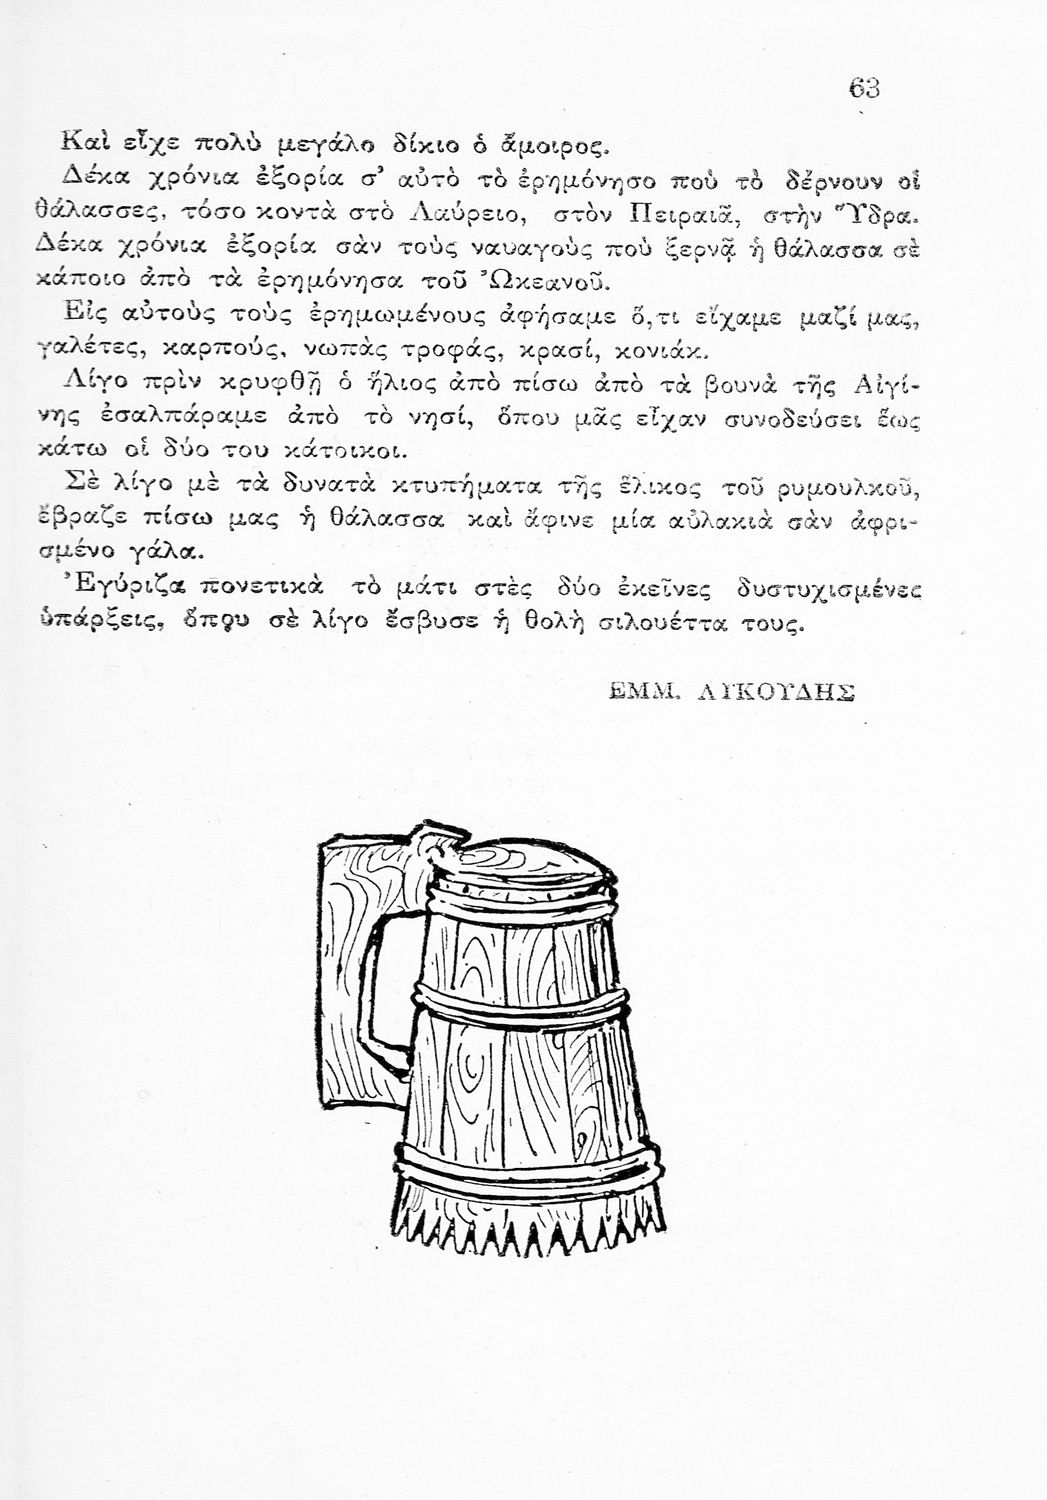 63
Καὶ εἶχε πολὺ μεγάλο δίκιο ὁ ἄμοιρος.
Δέκα χρόνια ἐξορία σ' αὐτὸ τὸ ἐρημόνησο ποὺ τὸ δέρνουν οἱ
θάλασσες, τόσο κοντὰ στὸ Λαύρειο, στὸν Πειραιᾶ, στὴν Ὕδρα.
Δέκα χρόνια ἐξορία σὰν τοὺς ναυαγοὺς ποὺ ξερνᾷ ἡ θάλασσα σὲ
κάποιο ἀπὸ τὰ ἐρημόνησα τοῦ Ὠκεανοῦ.
Εἰς αὐτοὺς τοὺς ἐρημωμένους ἀφήσαμε ὅ,τι εἴχαμε μαζί μας,
γαλέτες, καρπούς, νωπὰς τροφάς, κρασί, κονιάκ.
Λίγο πρὶν κρυφθῇ ὁ ἥλιος ἀπὸ πίσω ἀπὸ τὰ βουνὰ τῆς Αἰγί-
νης ἐσαλπάραμε ἀπὸ τὸ νησί, ὅπου μᾶς εἶχαν συνοδεύσει ἕως
κάτω οἱ δύο του κάτοικοι.
Σὲ λίγο μὲ τὰ δυνατὰ κτυπήματα τῆς ἕλικος τοῦ ρυμουλκοῦ,
ἔβραζε πίσω μας ἡ θάλασσα καὶ ἄφινε μία αὐλακιὰ σὰν ἀφρι-
σμένο γάλα.
Ἐγύριζα πονετικὰ τὸ μάτι στὲς δύο ἐκεῖνες δυστυχισμένες
ὑπάρξεις, ὅπου σὲ λίγο ἔσβυσε ἡ θολὴ σιλουέττα τους.
ΕΜΜ. ΛΥΚΟΥΔΗΣ